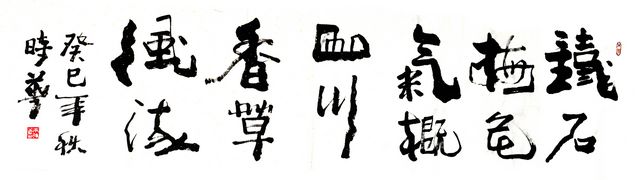 鐵石
梅花
氣概
山川
香草
風流
癸巳年秋
時